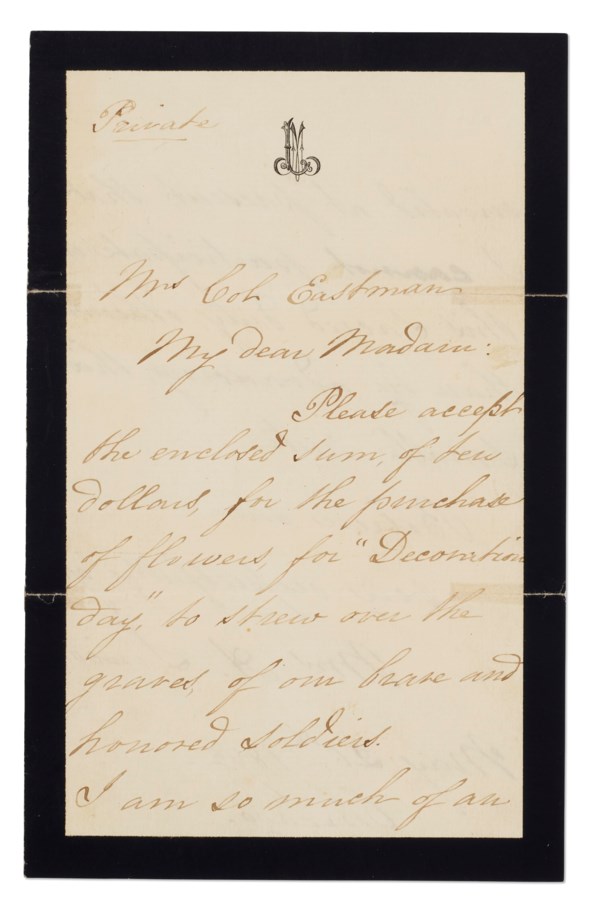 Private
Mrs Col Eastman
My dear Madam:
Please accept
the enclosed sum, of ten
dollars, for the purchase
of flowers, for "Decoration
day," to strew over the
graves, of our brave and
honored soldiers.
I am so much of an